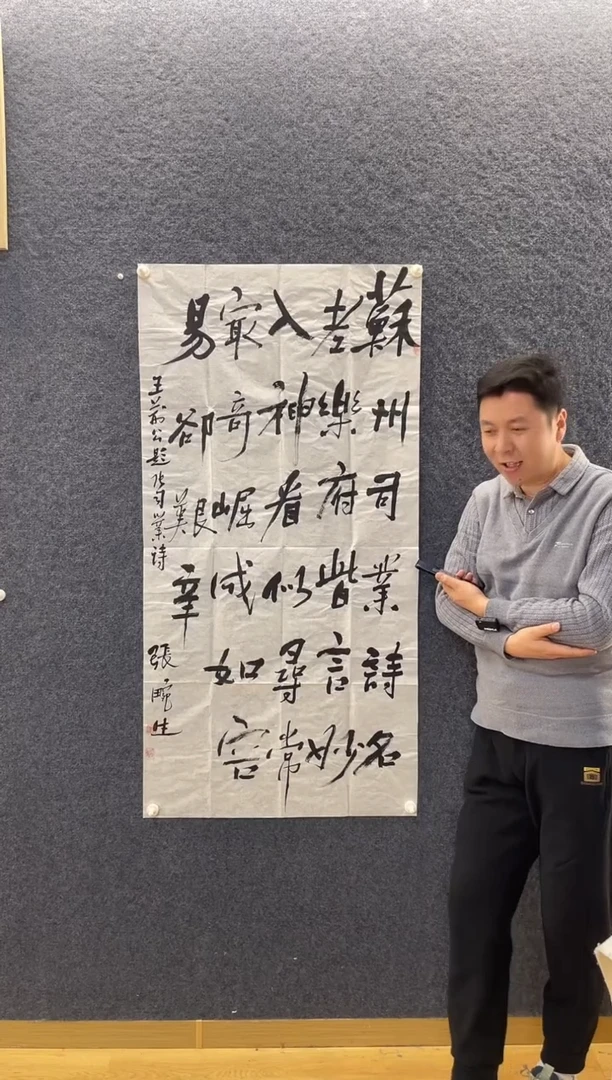 蘇州司業詩名
老樂府皆言妙
入神看似尋常
最奇崛成如容
易卻艱辛
王荊公題張司業詩
張生